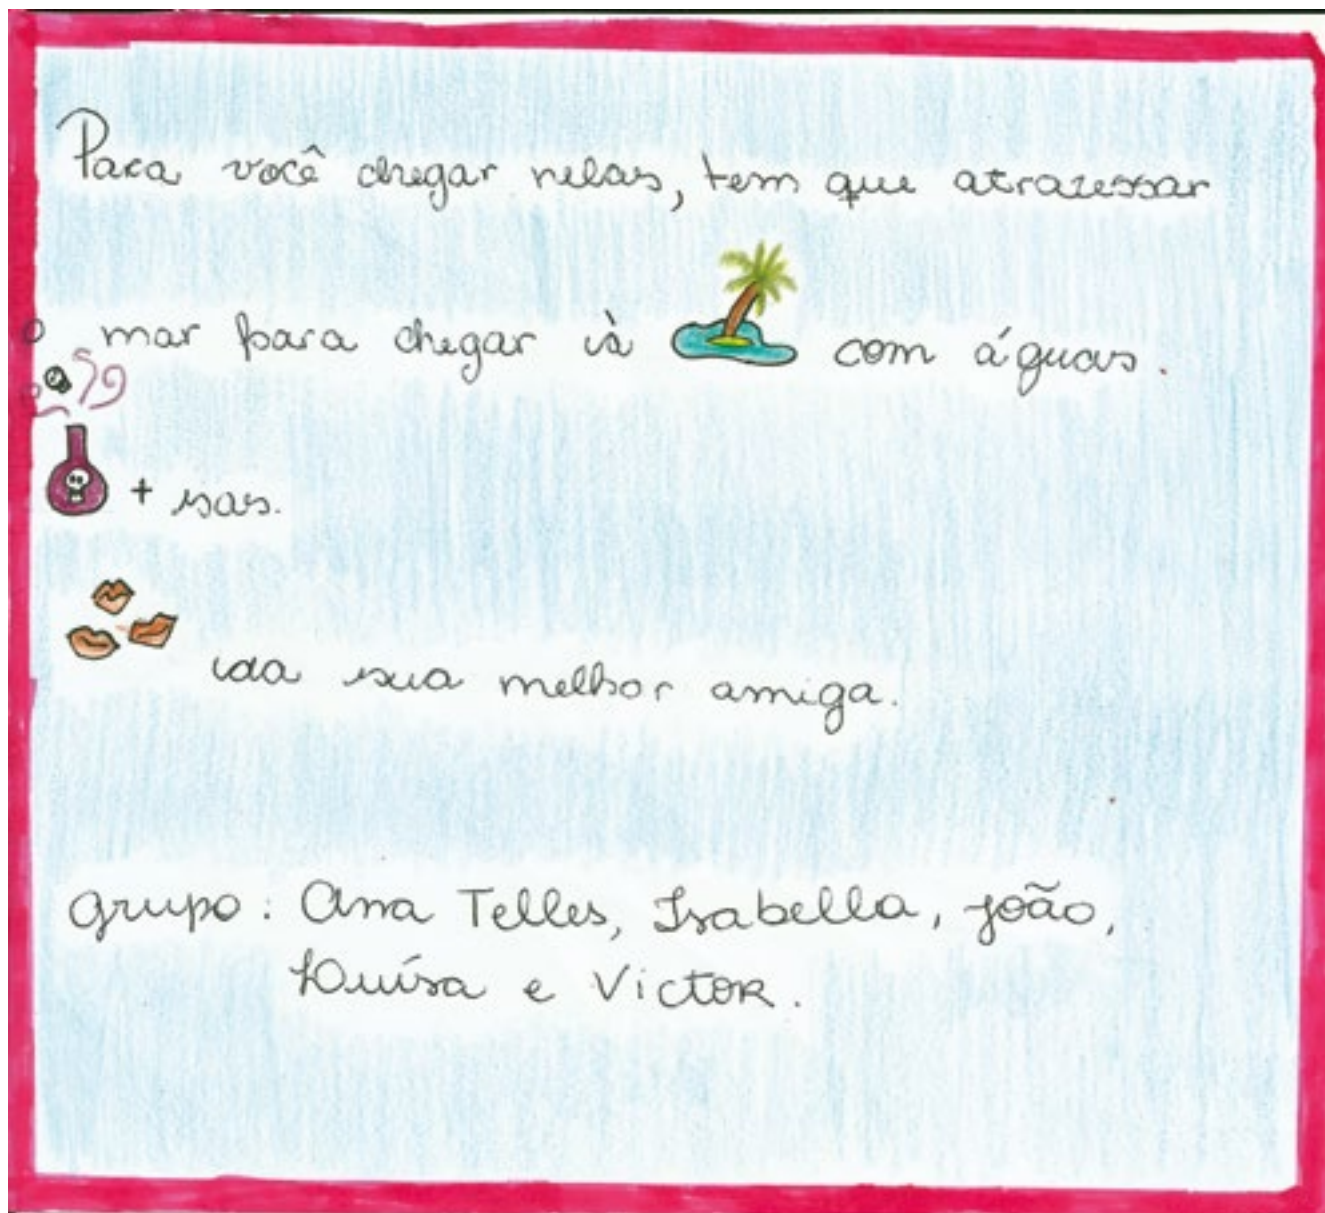 Para você chegar nelas, tem que atravessar
o mar para chegar à com águas.
+ sas.
da sua melhor amiga.
grupo: Ana Telles, Isabella, João,
Luísa e Victor.